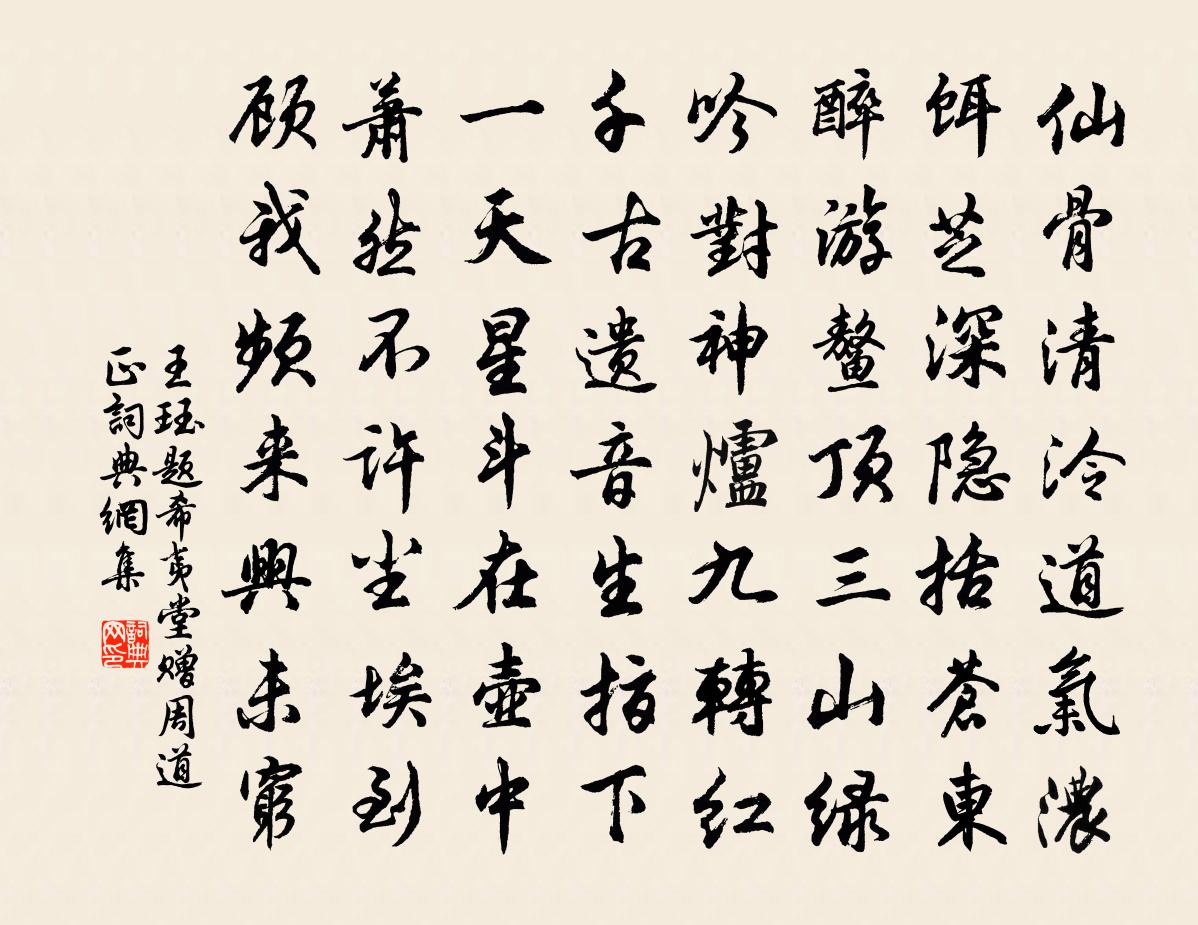 仙骨清泠道氣濃
餌芝深隐括蒼東
醉游鰲頂三山绿
吟對神爐九轉红
千古遗音生指下
一天星斗在壺中
蕭然不许尘埃到
顾我频来興未窮
王珏题希夷堂赠周道
正詞典網集
詞典网印